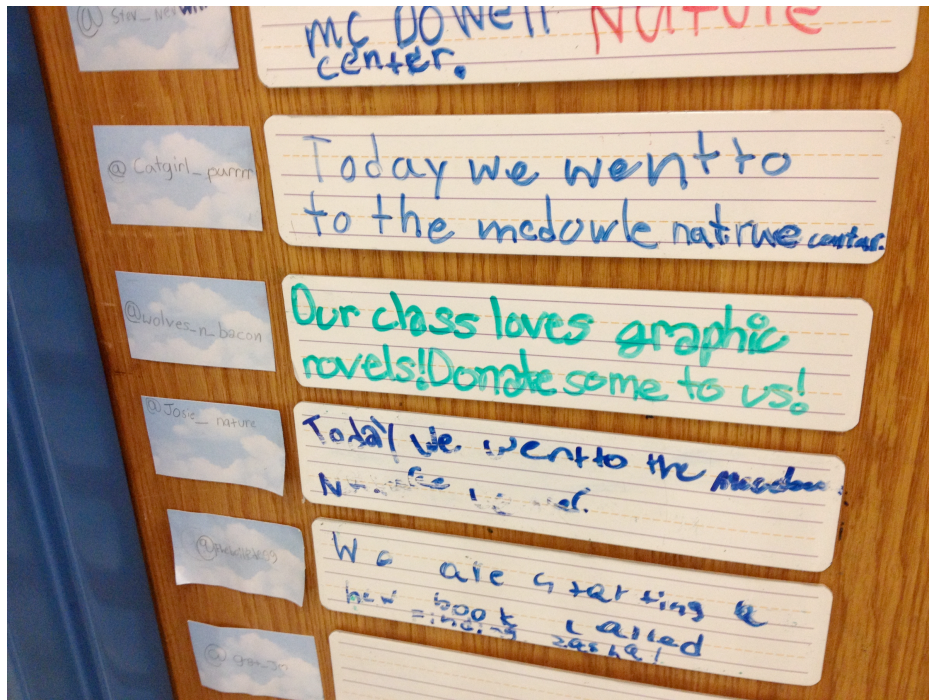 mc Dowell Nature
center.
@Catgirl_purrrr
Today we went to
to the mcdowle natrwe centar.
@wolves_n_bacon
Our class loves graphic
novels!Donate some to us!
@Josie_nature
Today We went to the
We are starting a
new book called